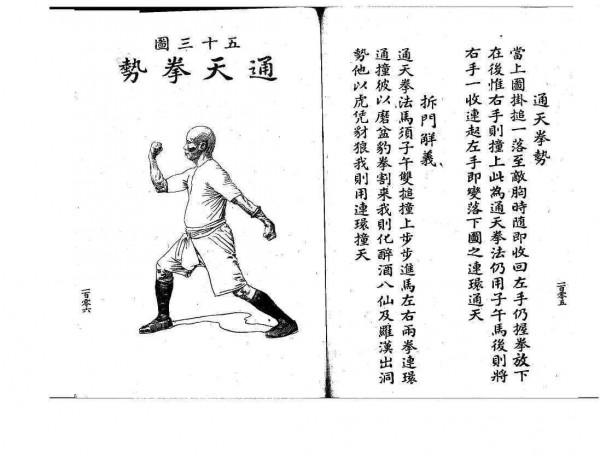 通天拳勢
當上圖掛搥一落至敵胸時随即收回左手仍握拳放下
在後惟右手則撞上此為通天拳法仍用子午馬後則將
右手一收連起左手即變落下圖之連環通天
拆門觧義
通天拳法馬須子午雙搥撞上步步進馬左右兩拳連環
通撞彼以磨盆豹拳割来我則化醉酒八仙及羅漢出洞
勢他以虎凭豺狼我則用連環撞天
一百零五
五十三圖
通天拳勢
一百零六